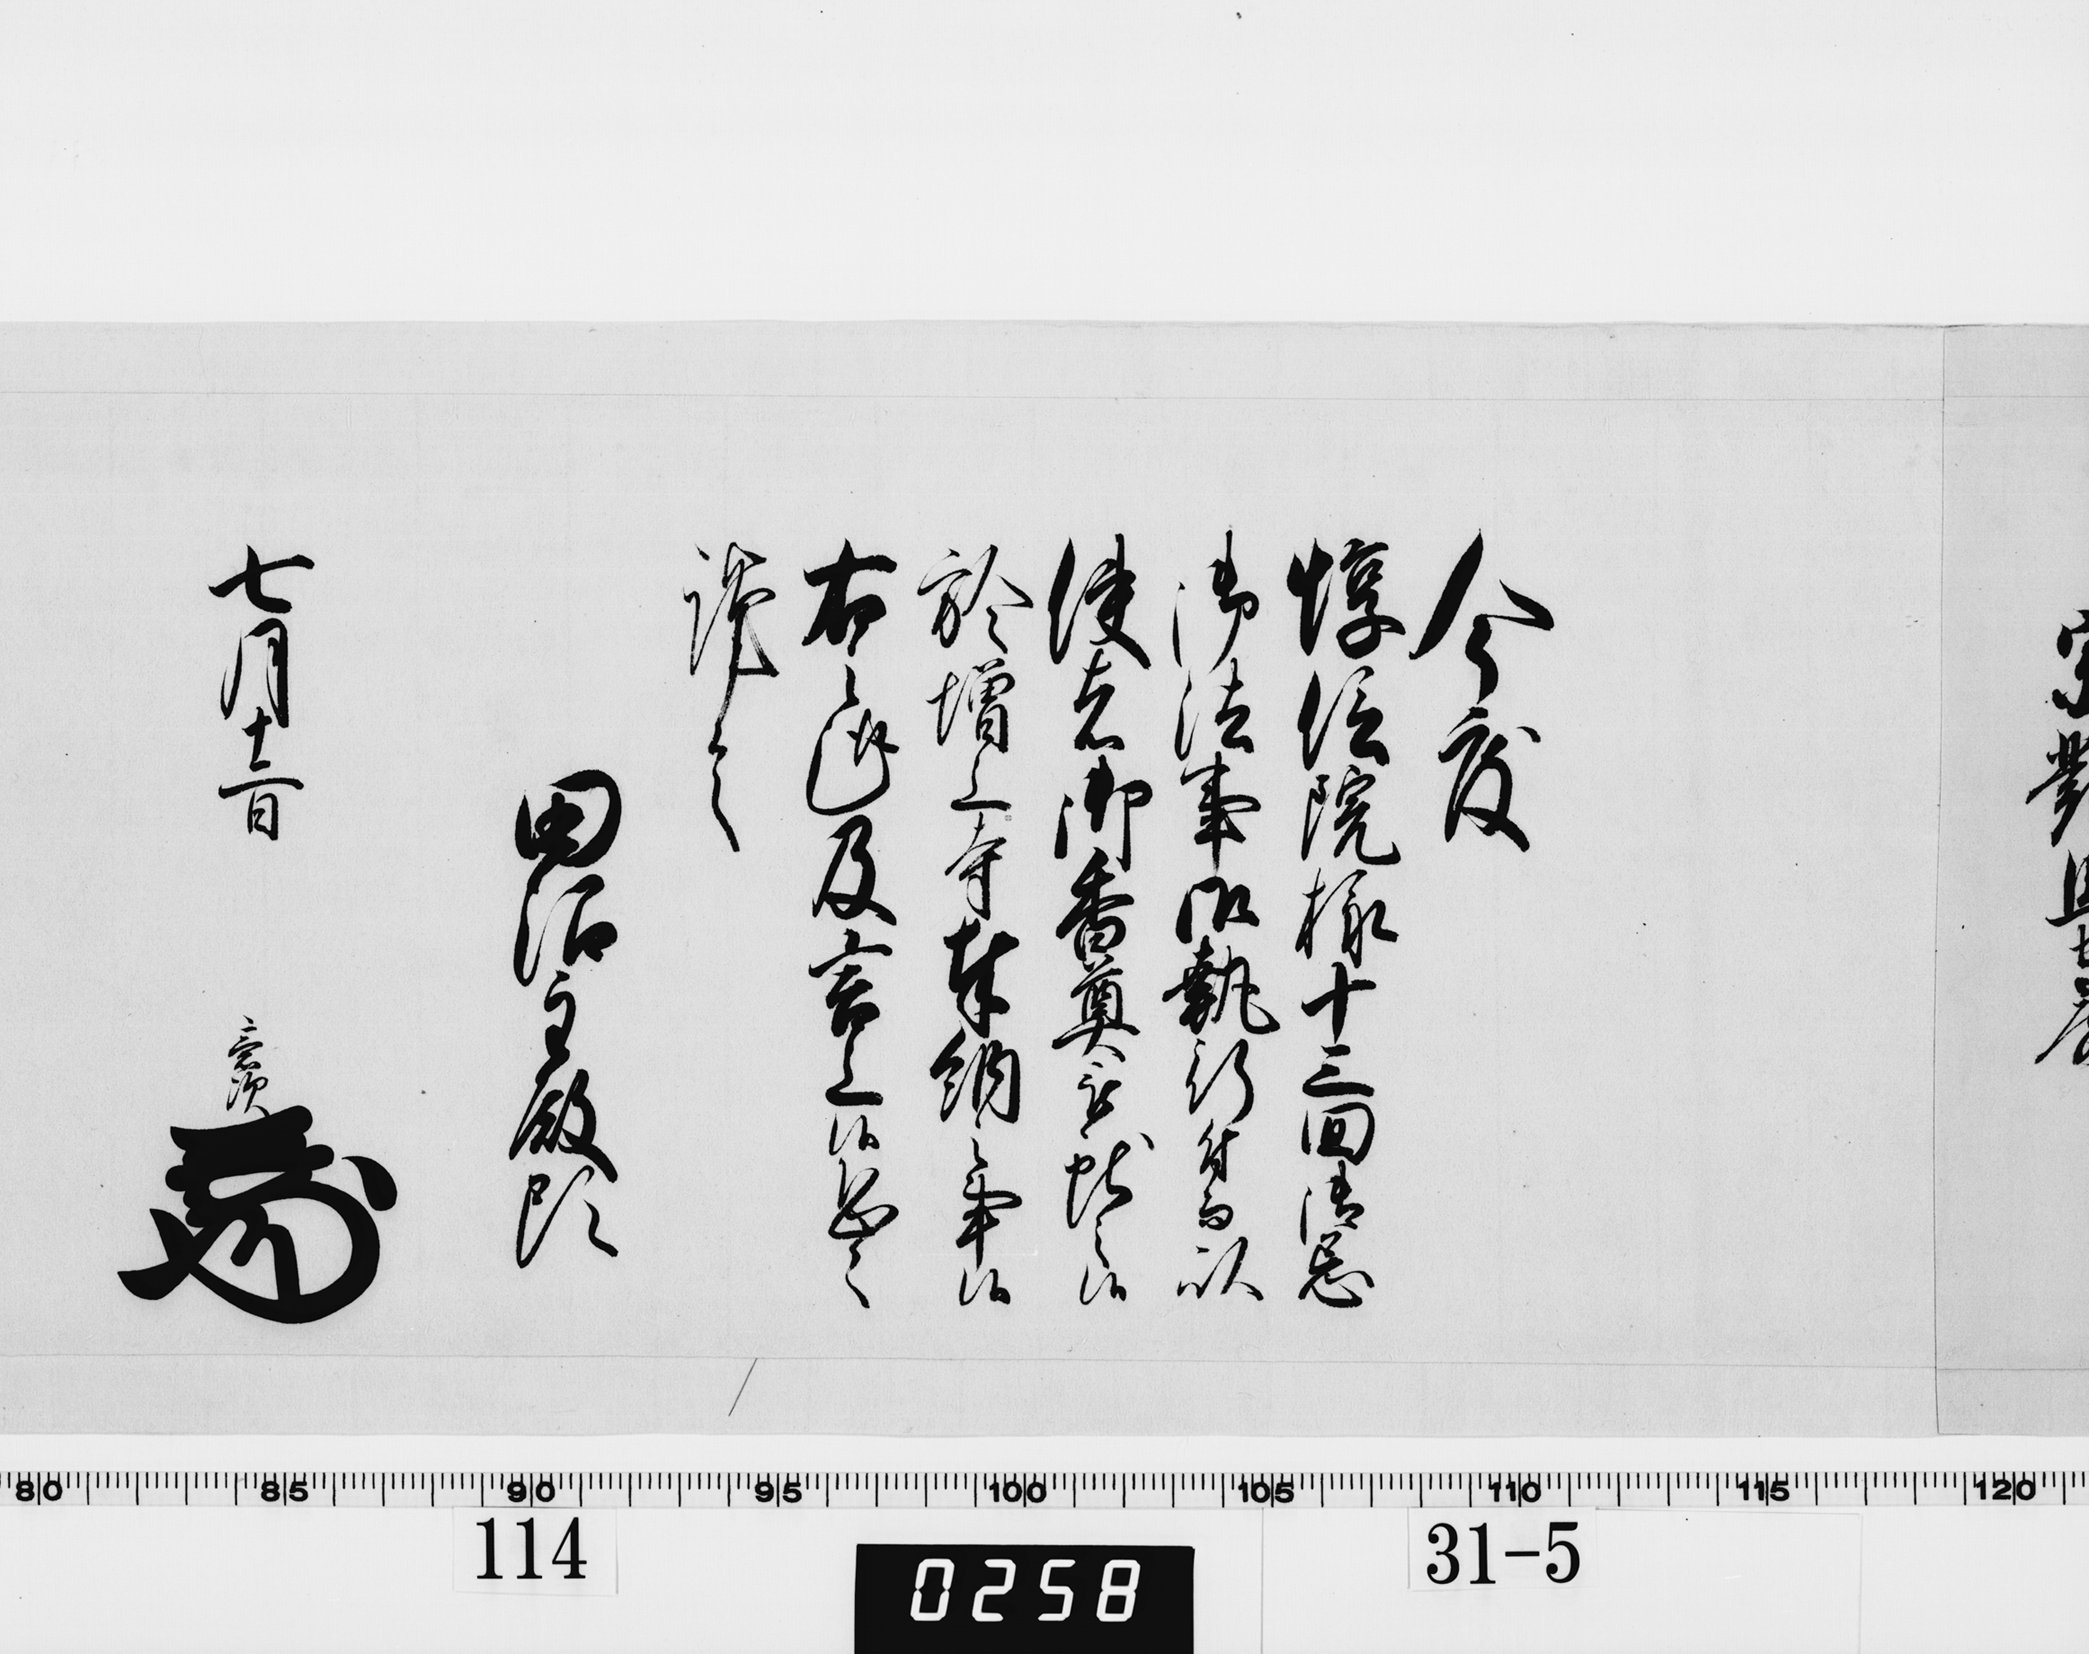 宗對馬守殿
今度
惇信院様十三回御忌
御法事御執行付而以
使者御香奠被献之候
於増上寺奉納之事候
右之趣及言上候恐々
謹言
田沼主殿頭
七月十二日
意次
80 85 90 95 100 105 110 115 120
114
0258
31-5